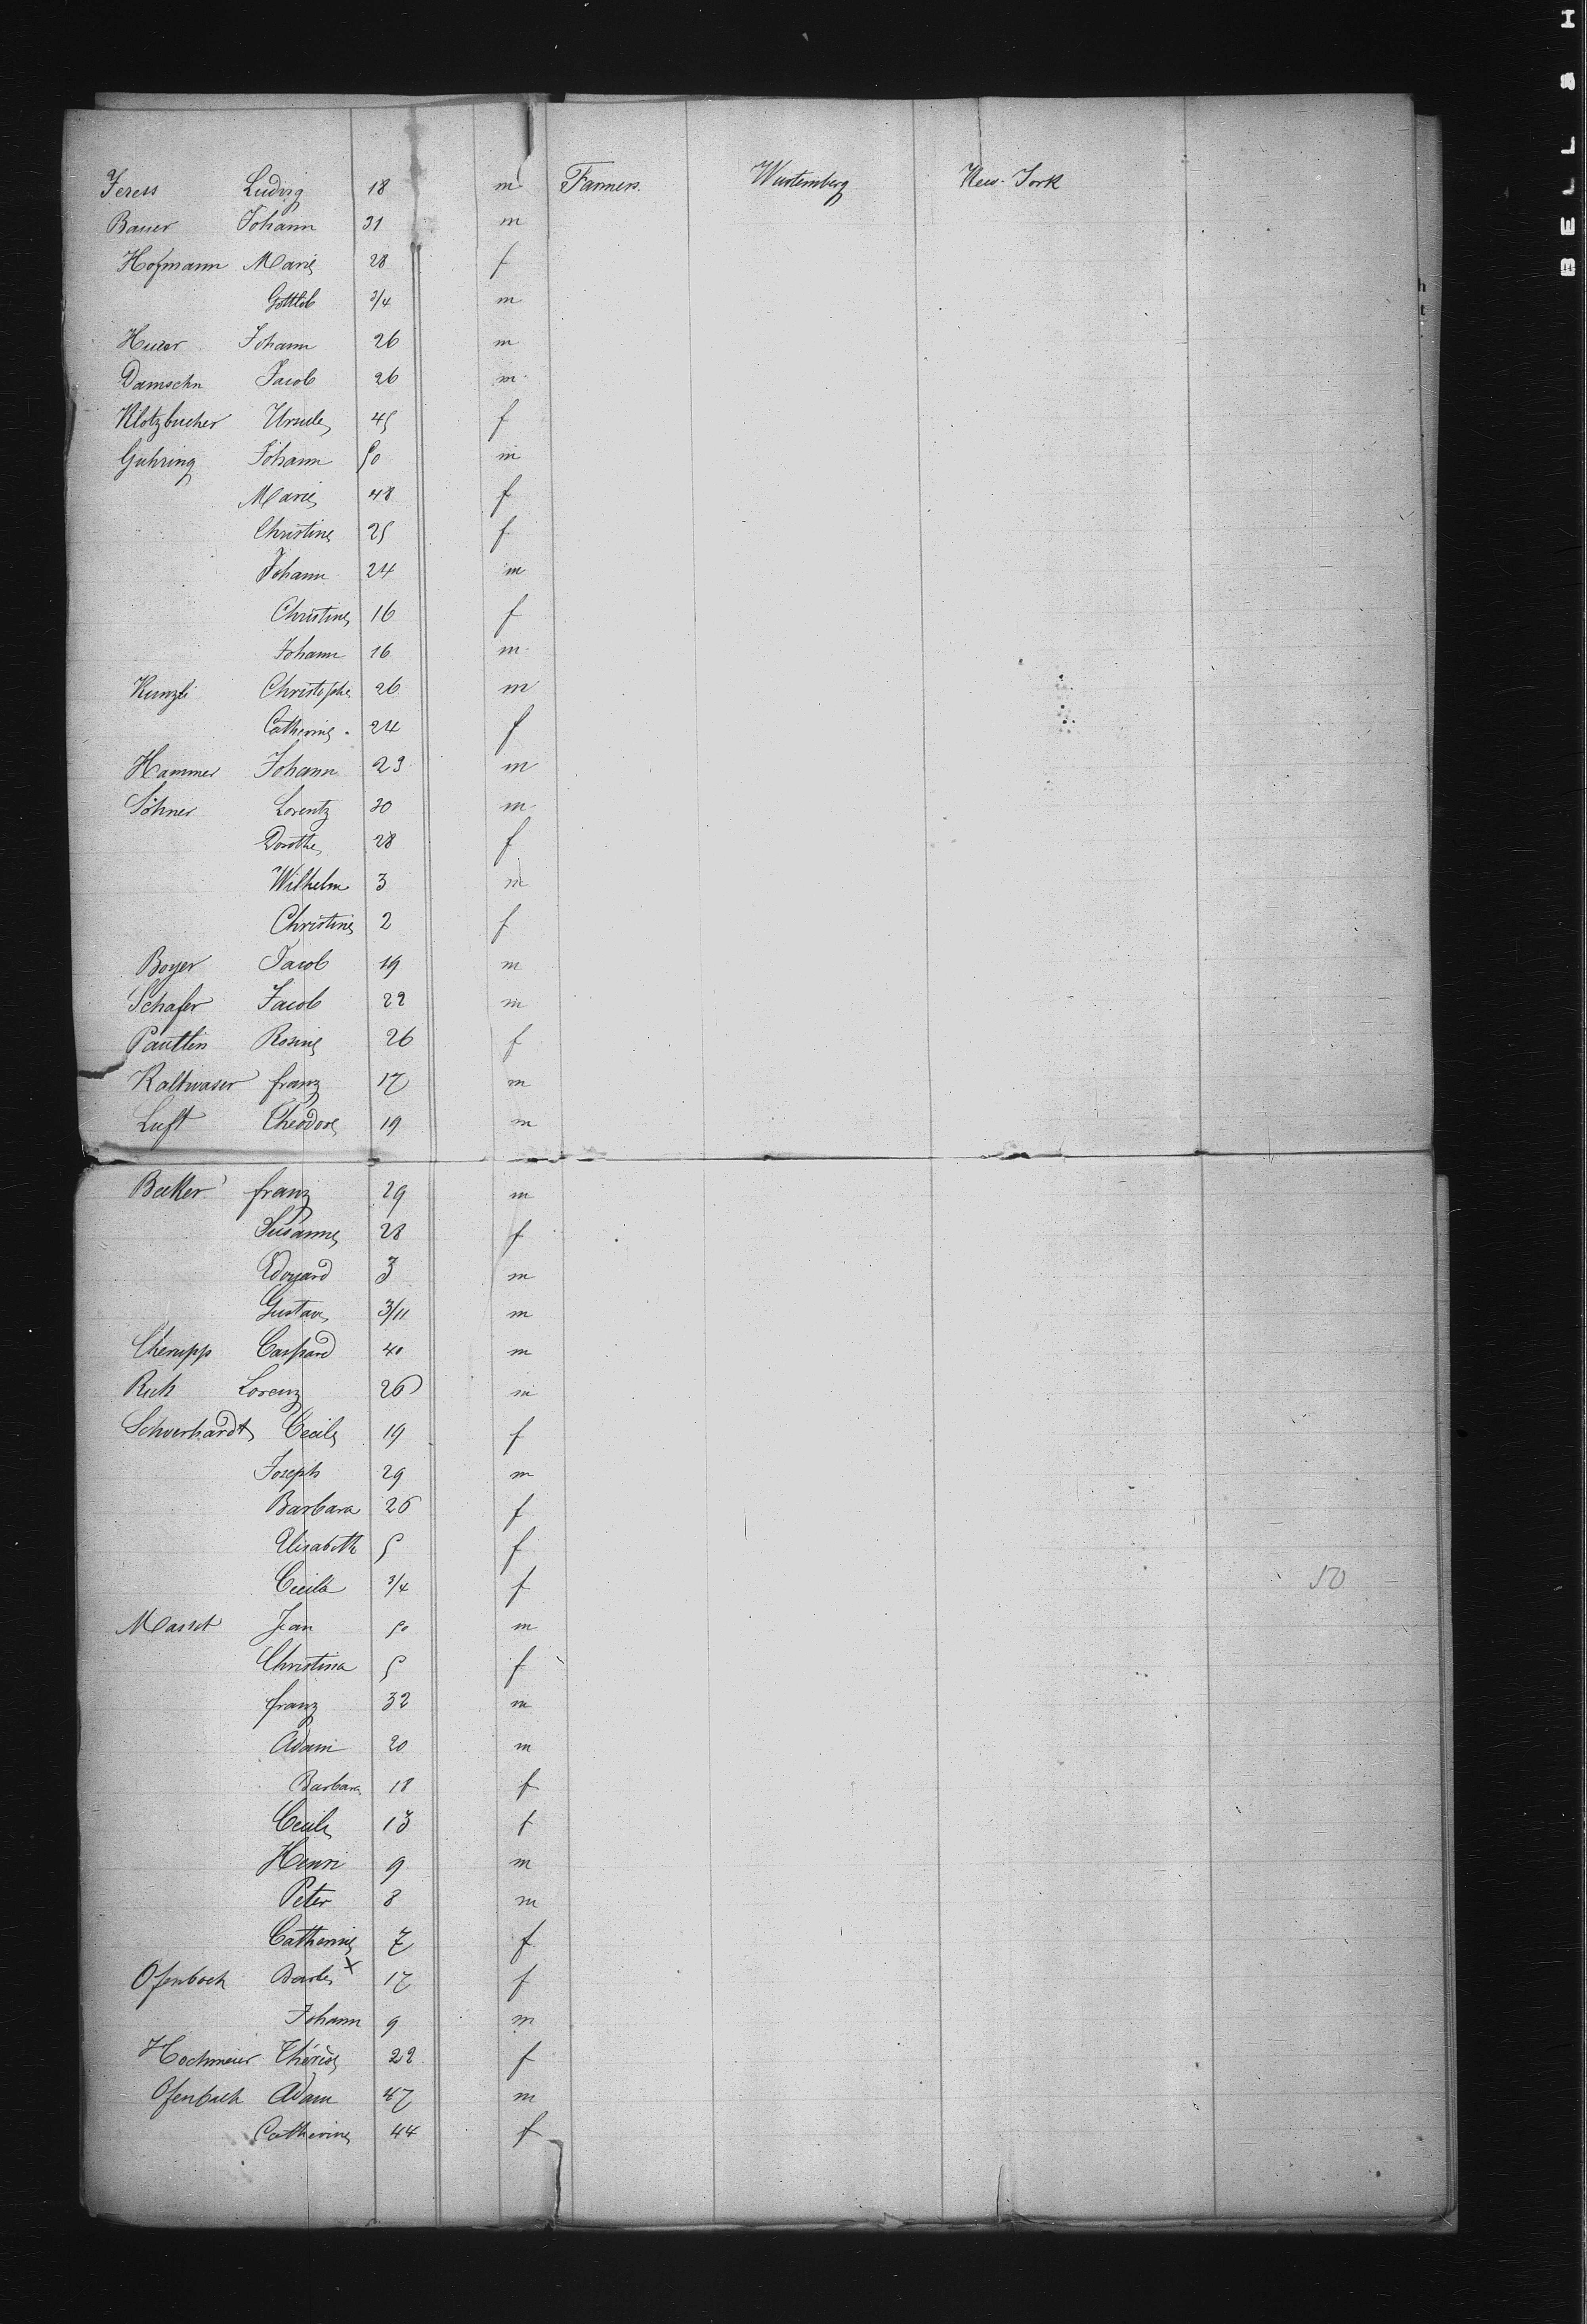 Jeress Ludvig 18 m Farmers. Wurtemberg New-York
Bauer Johann 31 m
Hofmann Marie 28 f
Gottlieb 3/4 m
Huzer Johann 26 m
Damschn Jacob 26 m
Klotzbucher Ursule 45 f
Guhring Johann 50 m
Marie 48 f
Christine 25 f
Johann 24 m
Christine 16 f
Johann 16 m
Kunzli Christophe 26 m
Catherine 24 f
Hammer Johann 23 m
Söhner Lorentz 30 m
Dorothe 28 f
Wilhelm 3 m
Christine 2 f
Boyer Jacob 19 m
Schafer Jacob 22 m
Pautlin Rosine 26 f
Kaltwaser franz 17 m
Luft Théodore 19 m
Becker franz 29 m
Susanne 28 f
Edouard 3 m
Gustave 3/11 m
Cherupp Caspard 40 m
Ruh Lorenz 26 m
Schverhardt Cecile 19 f
Joseph 29 m
Barbara 26 f
Elisabeth 5 f
Cecile 3/4 f
50
Masset Jean 50 m
Christina 5 f
franz 32 m
Adam 20 m
Barbara 18 f
Cecile 13 f
Henri 9 m
Peter 8 m
Catherine 7 f
Ofenboch x 17 f
Johann 9 m
Hochmeier Thérèse 22 f
Ofenbach Adam 47 m
Catherine 44 f
BELL & H